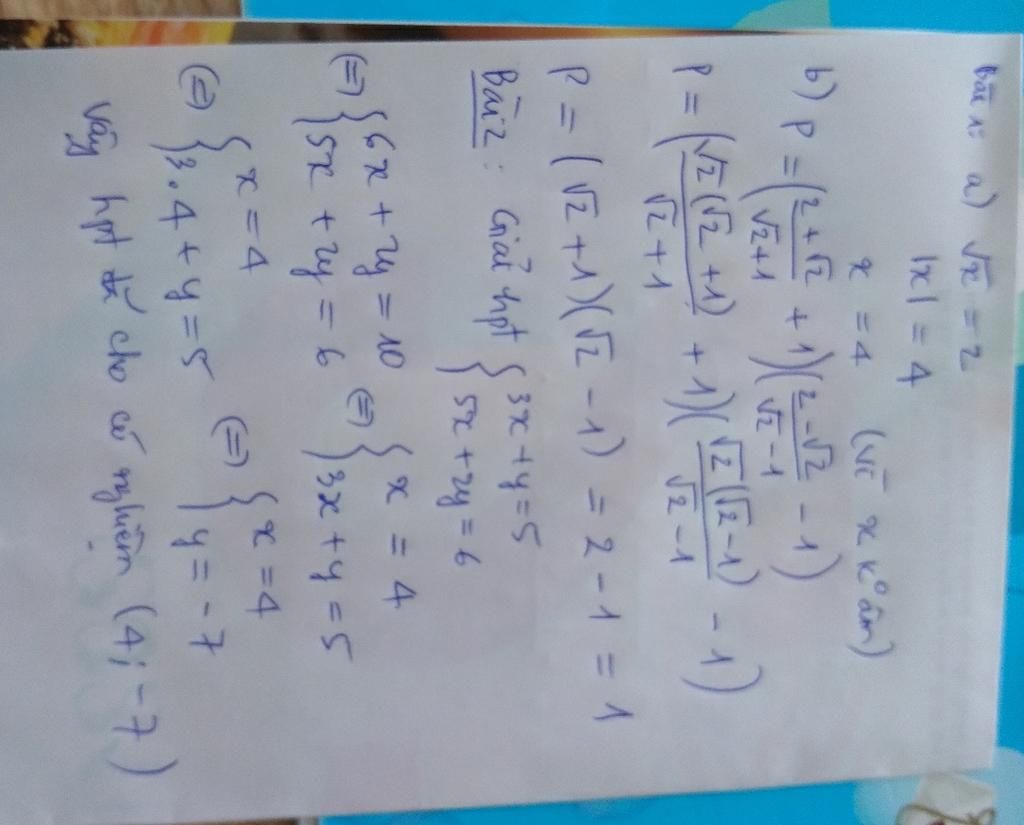 Bài 1: a) √x = 2
|x| = 4
x = 4 (vì x k° âm)
b) P = ((2 + √2)/(√2 + 1) + 1)((2 - √2)/(√2 - 1) - 1)
P = (√2(√2 + 1)/(√2 + 1) + 1)(√2(√2 - 1)/(√2 - 1) - 1)
P = (√2 + 1)(√2 - 1) = 2 - 1 = 1
Bài 2: Giải hpt { 3x + y = 5
5x + 2y = 6
(=) { 6x + 2y = 10 (=) { x = 4
5x + 2y = 6 3x + y = 5
(=) { x = 4 (=) { x = 4
3.4 + y = 5 y = -7
Vậy hpt đã cho có nghiệm (4; -7)